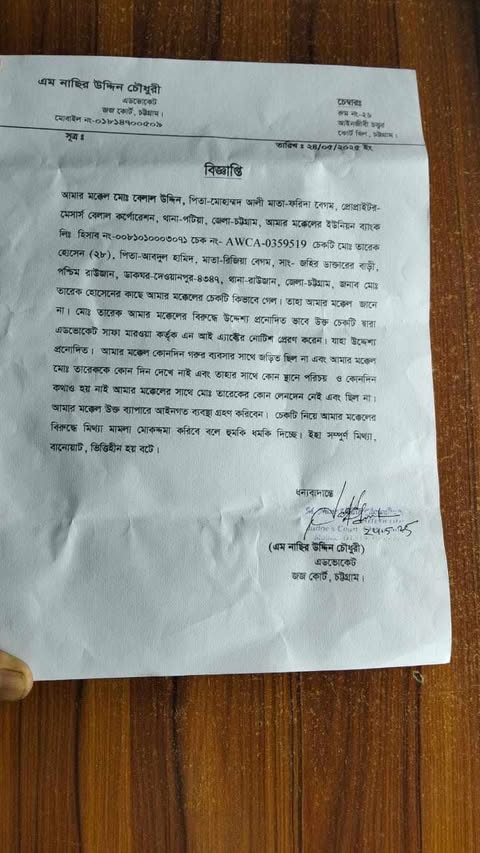 এম নাছির উদ্দিন চৌধুরী
এডভোকেট
জজ কোর্ট, চট্টগ্রাম।
মোবাইল নং-০১৮১৪৭০০৫০৯
চেম্বারঃ
রুম নং-২৬
আইনজীবী চত্বর
কোর্ট হিল, চট্টগ্রাম।
সূত্র ঃ
তারিখ ঃ ২৪/০৫/২০২৫ ইং
বিজ্ঞাপ্তি
আমার মক্কেল মোঃ বেলাল উদ্দিন, পিতা-মোহাম্মদ আলী মাতা-ফরিদা বেগম, প্রোপ্রাইটর-
মেসার্স বেলাল কর্পোরেশন, থানা-পটিয়া, জেলা-চট্টগ্রাম, আমার মক্কেলের ইউনিয়ন ব্যাংক
লিঃ হিসাব নং-০০৮১০১০০০৩০৭১ চেক নং- AWCA-0359519 চেকটি মোঃ তারেক
হোসেন (২৮), পিতা-আবদুল হামিদ, মাতা-রিজিয়া বেগম, সাং- জহির ডাক্তারের বাড়ী,
পশ্চিম রাউজান, ডাকঘর-দেওয়ানপুর-৪৩৪৭, থানা-রাউজান, জেলা-চট্টগ্রাম, জনাব মোঃ
তারেক হোসেনের কাছে আমার মক্কেলের চেকটি কিভাবে গেল। তাহা আমার মক্কেল জানে
না। মোঃ তারেক আমার মক্কেলের বিরুদ্ধে উদ্দেশ্য প্রনোদিত ভাবে উক্ত চেকটি দ্বারা
এডভোকেট সাফা মারওয়া কর্তৃক এন আই এ্যাক্টের নোটিশ প্রেরণ করেন। যাহা উদ্দেশ্য
প্রনোদিত। আমার মক্কেল কোনদিন গরুর ব্যবসার সাথে জড়িত ছিল না এবং আমার মক্কেল
মোঃ তারেককে কোন দিন দেখে নাই এবং তাহার সাথে কোন স্থানে পরিচয় ও কোনদিন
কথাও হয় নাই আমার মক্কেলের সাথে মোঃ তারেকের কোন লেনদেন নেই এবং ছিল না।
আমার মক্কেল উক্ত ব্যাপারে আইনগত ব্যবস্থা গ্রহণ করিবেন। চেকটি নিয়ে আমার মক্কেলের
বিরুদ্ধে মিথ্যা মামলা মোকদ্দমা করিবে বলে হুমকি ধমকি দিচ্ছে। ইহা সম্পূর্ণ মিথ্যা,
বানোয়াট, ভিত্তিহীন হয় বটে।
ধন্যবাদান্তে
(এম নাছির উদ্দিন চৌধুরী)
এডভোকেট
জজ কোর্ট, চট্টগ্রাম।